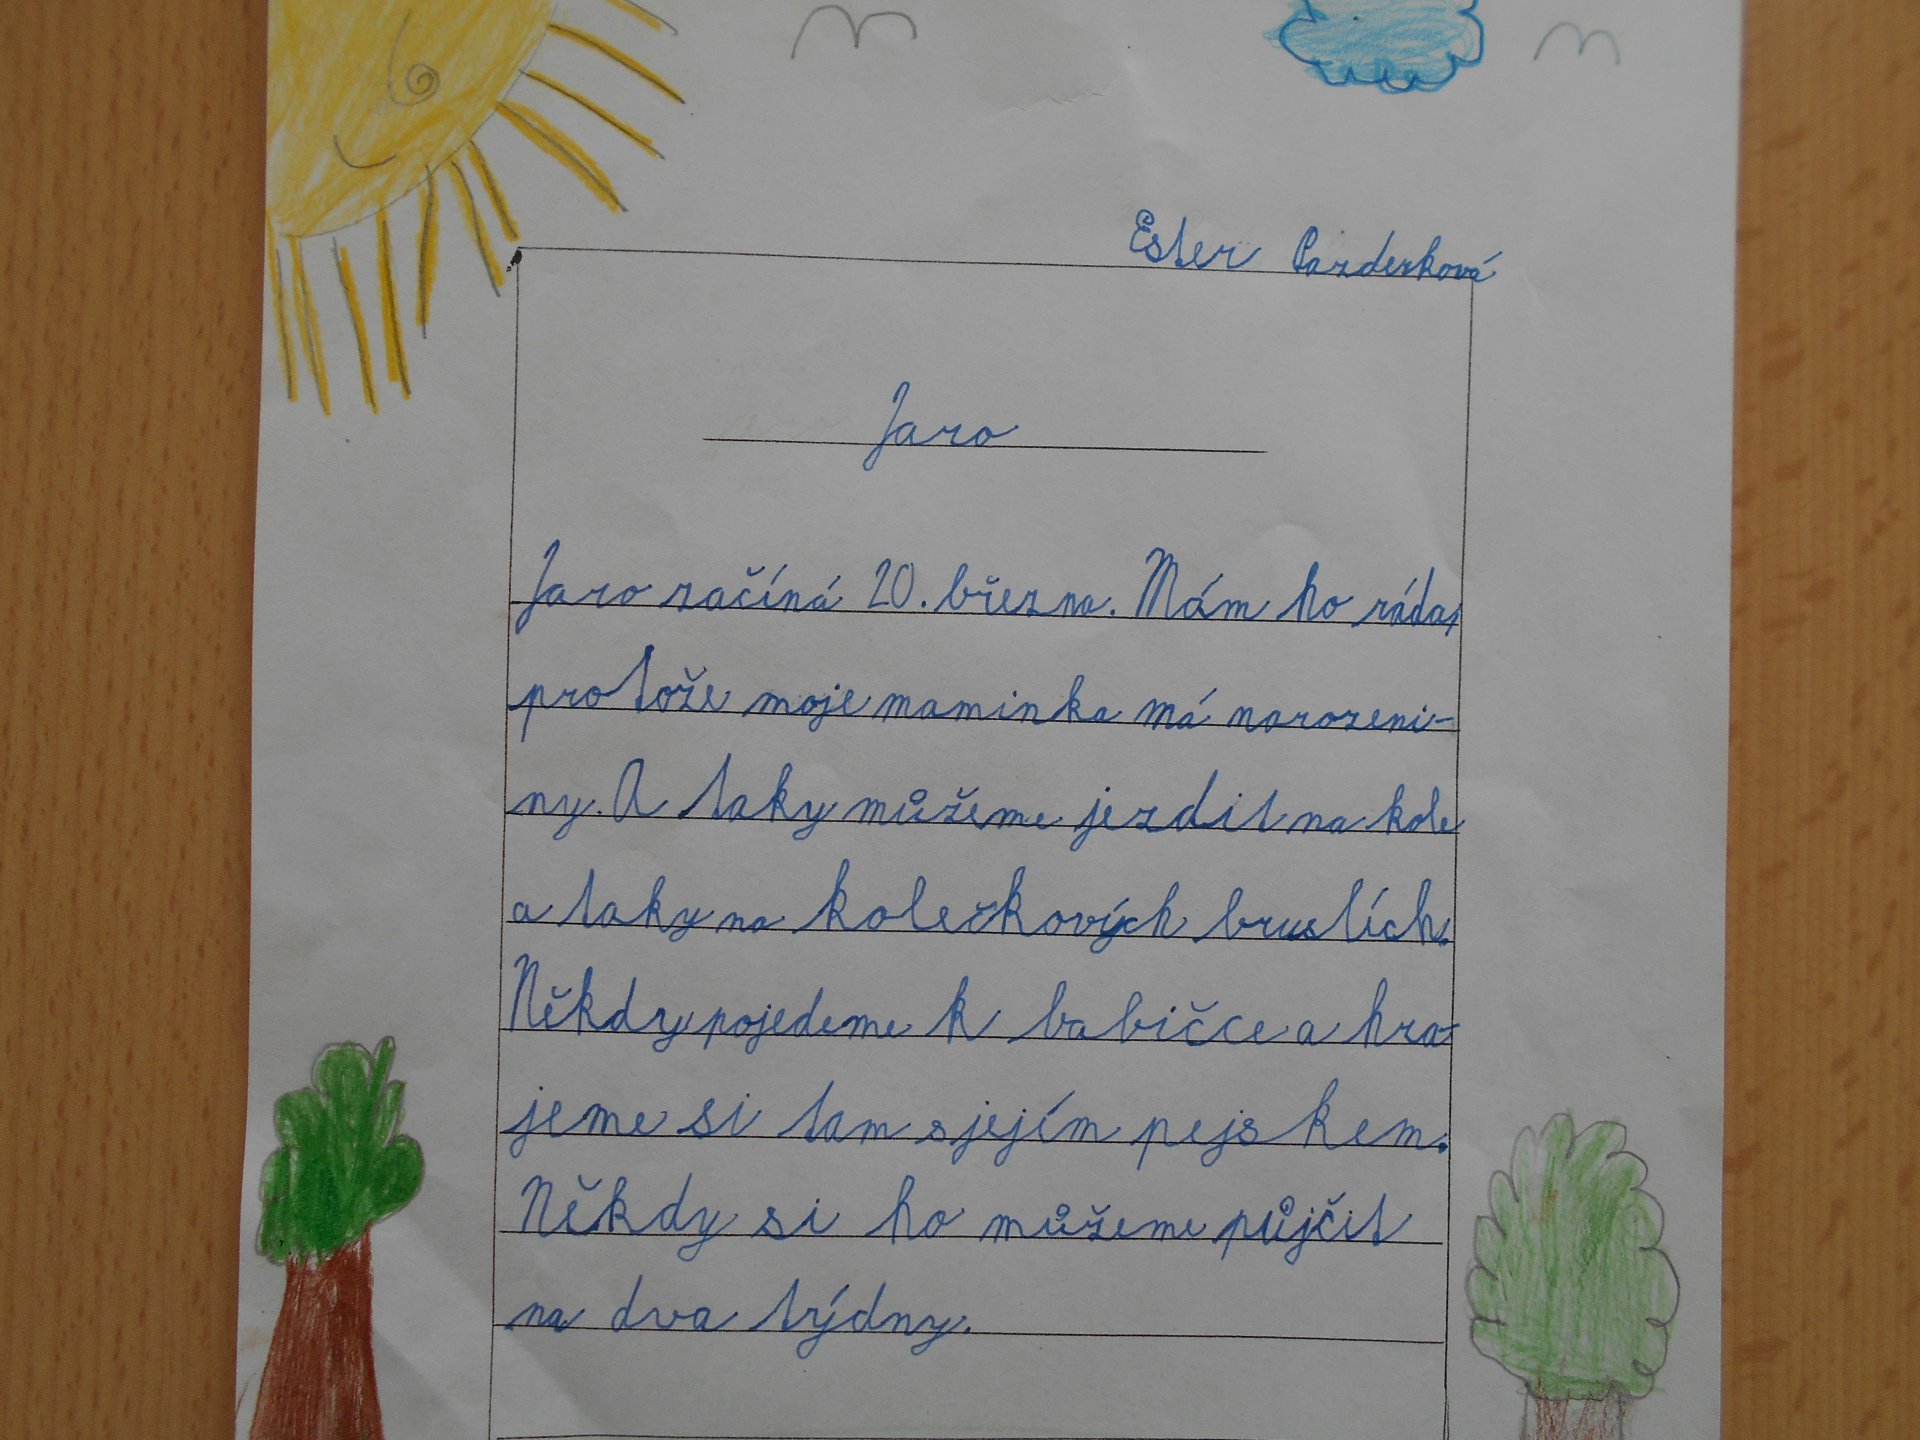 Ester Pazderková
Jaro
Jaro začíná 20. března. Mám ho ráda,
protože moje maminka má narozeni-
ny. A taky můžeme jezdit na kole
a taky na kolečkových bruslích.
Někdy pojedeme k babičce a hra-
jeme si tam s jejím pejskem.
Někdy si ho můžeme půjčit
na dva týdny.